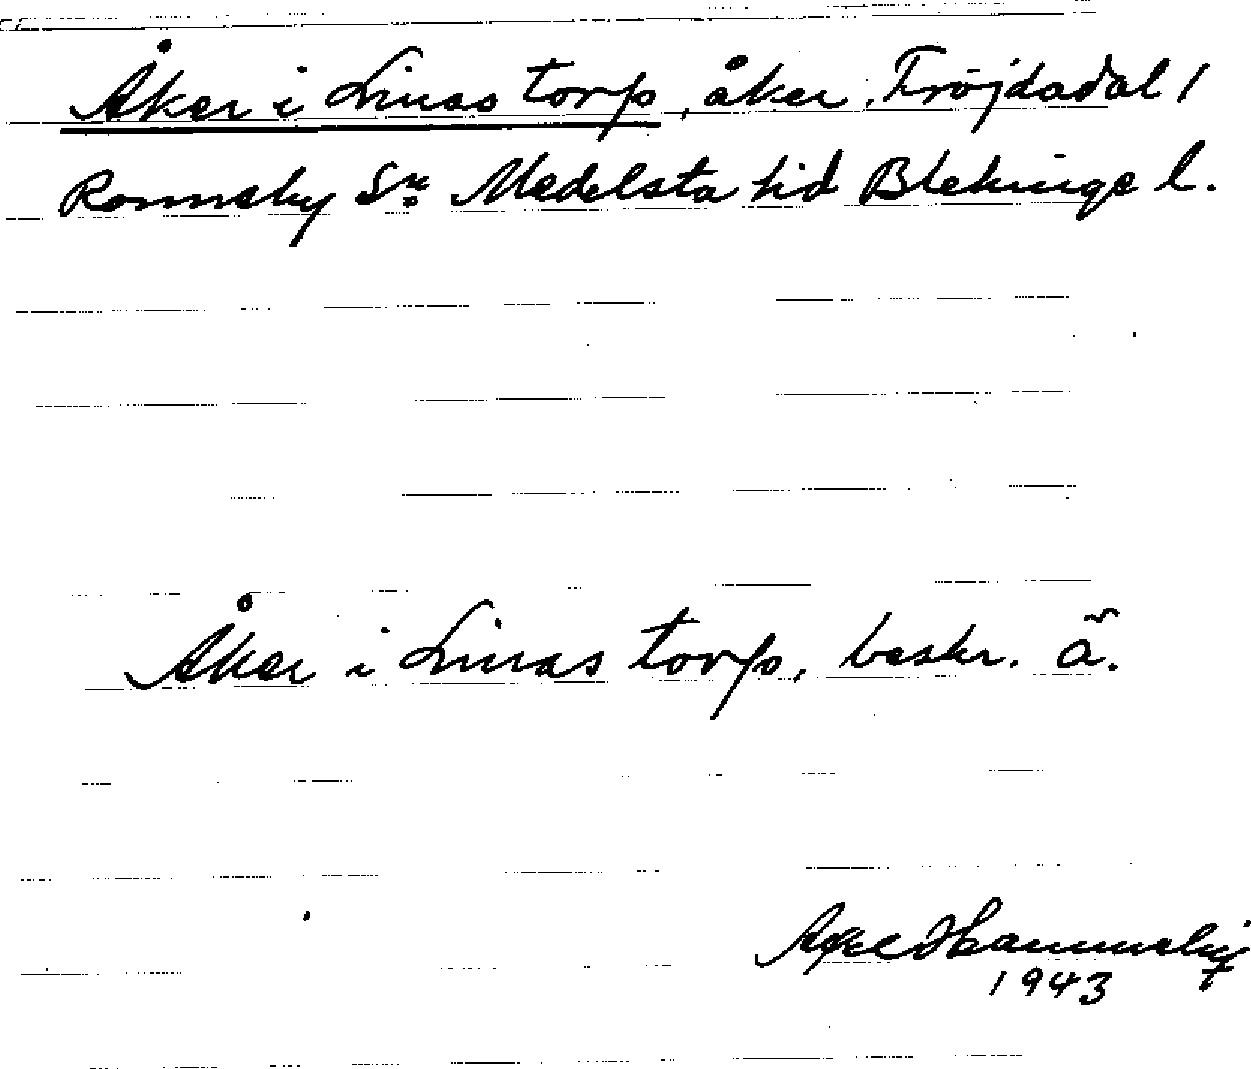 Åker i Linas torp, åker, Fröjdadal 1
Ronneby Sn. Medelsta hd Blekinge l.
Åker i Linas torp, beskr. ä.
Axel
1943